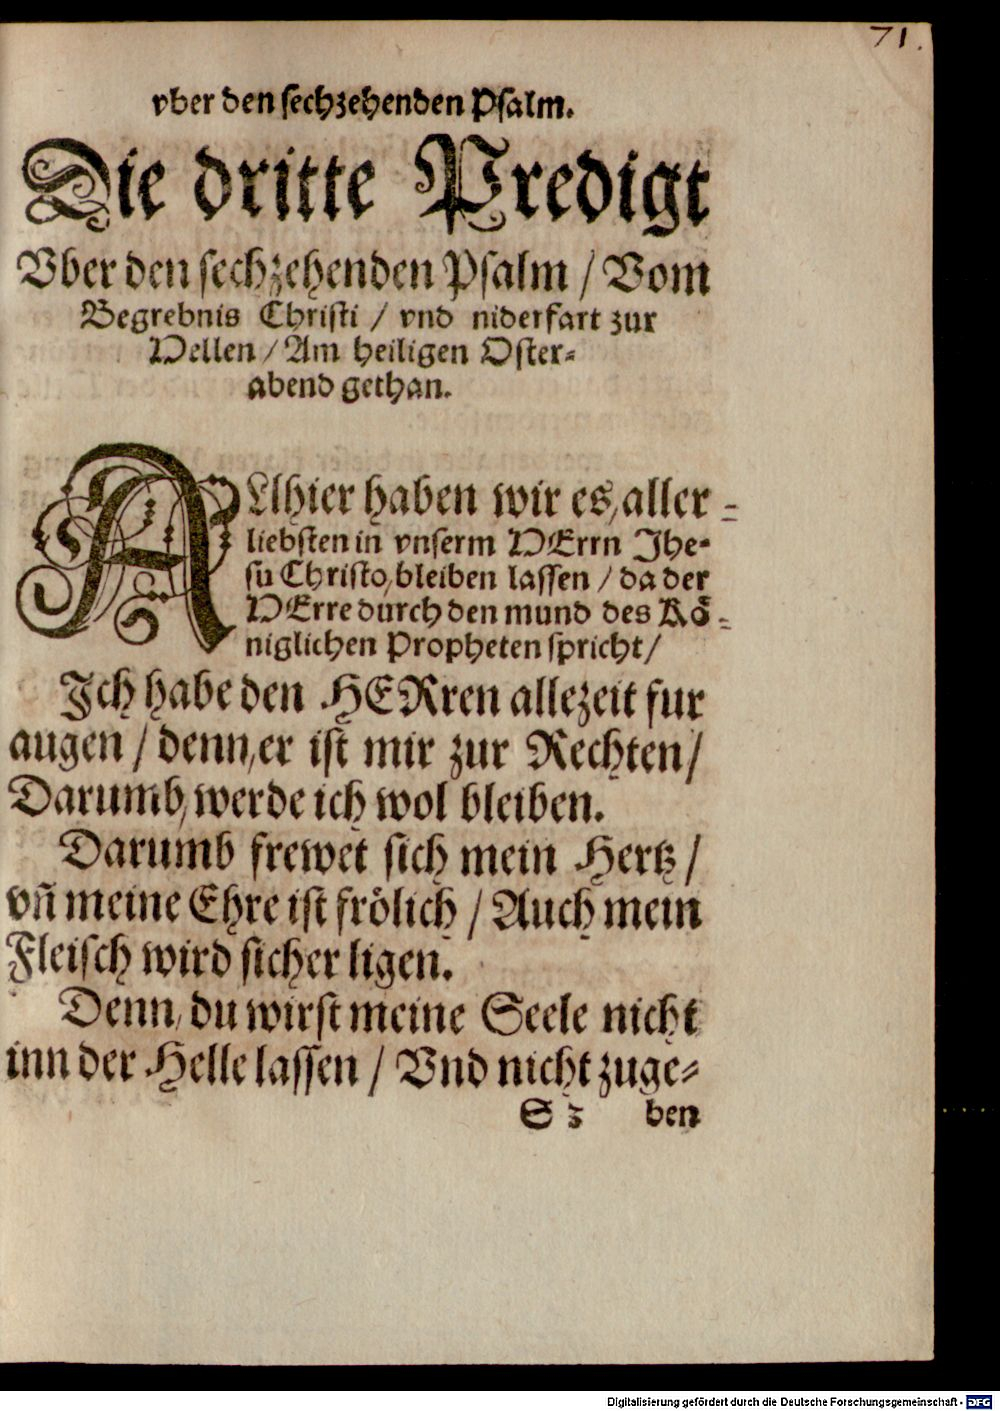 71.
vber den sechzehenden Psalm.
Die dritte Predigt
Vber den sechzehenden Psalm / Vom
Begrebnis Christi / vnd niderfart zur
Hellen / Am heiligen Oster⸗
abend gethan.
ALlhier haben wir es, aller⸗
liebsten in vnserm HErrn Jhe⸗
su Christo, bleiben lassen / da der
HErre durch den mund des Kö⸗
niglichen Propheten spricht /
Ich habe den HERren allezeit fur
augen / denn, er ist mir zur Rechten /
Darumb, werde ich wol bleiben.
Darumb frewet sich mein Hertz /
vñ meine Ehre ist frölich / Auch mein
Fleisch wird sicher ligen.
Denn, du wirst meine Seele nicht
inn der Helle lassen / Vnd nicht zuge⸗
S 3 ben
Digitalisierung gefördert durch die Deutsche Forschungsgemeinschaft - DFG